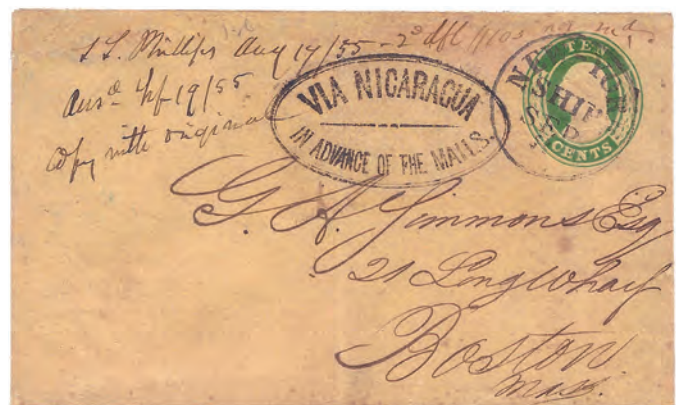 S. L. Phillips Aug 17/55 - 2
Ansd 19/55
Copy with original
VIA NICARAGUA
IN ADVANCE OF THE MAILS.
NEW YOR
SHIP
SEP
TEN
CENTS
G. A. Simmons Esq
21 Long Wharf
Boston
Mass.